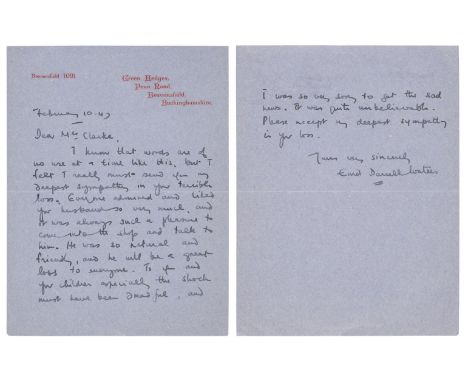 Beaconsfield 1091
Green Hedges,
Penn Road,
Beaconsfield,
Buckinghamshire.
February 10. 47
Dear Mrs Clarke,
I know that words are of
no use at a time like this, but I
felt I really must send you my
deepest sympathy in your terrible
loss. Everyone admired and liked
your husband so very much, and
it was always such a pleasure to
come into the shop and talk to
him. He was so natural and
friendly, and he will be a great
loss to everyone. To you and
your children especially the shock
must have been dreadful, and
I was so very sorry to get the sad
news. It was quite unbelievable.
Please accept my deepest sympathy
in your loss.
Yours very sincerely
Enid Darrell Waters